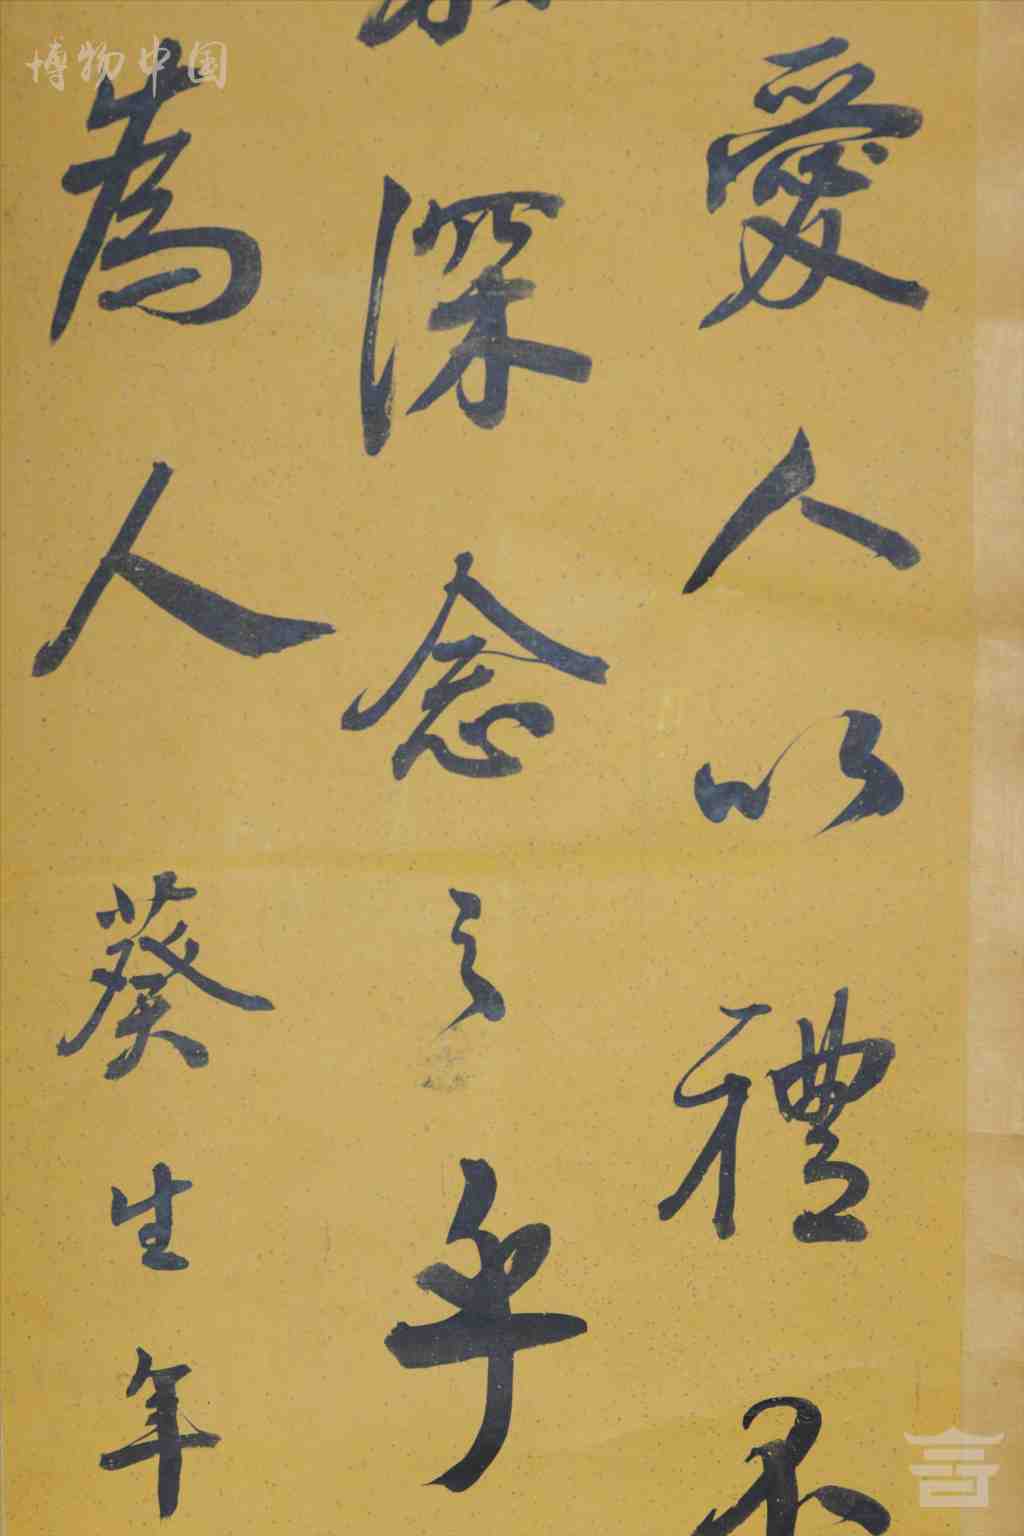 愛人以禮不
深念之乎
為人葵生年
博物中国